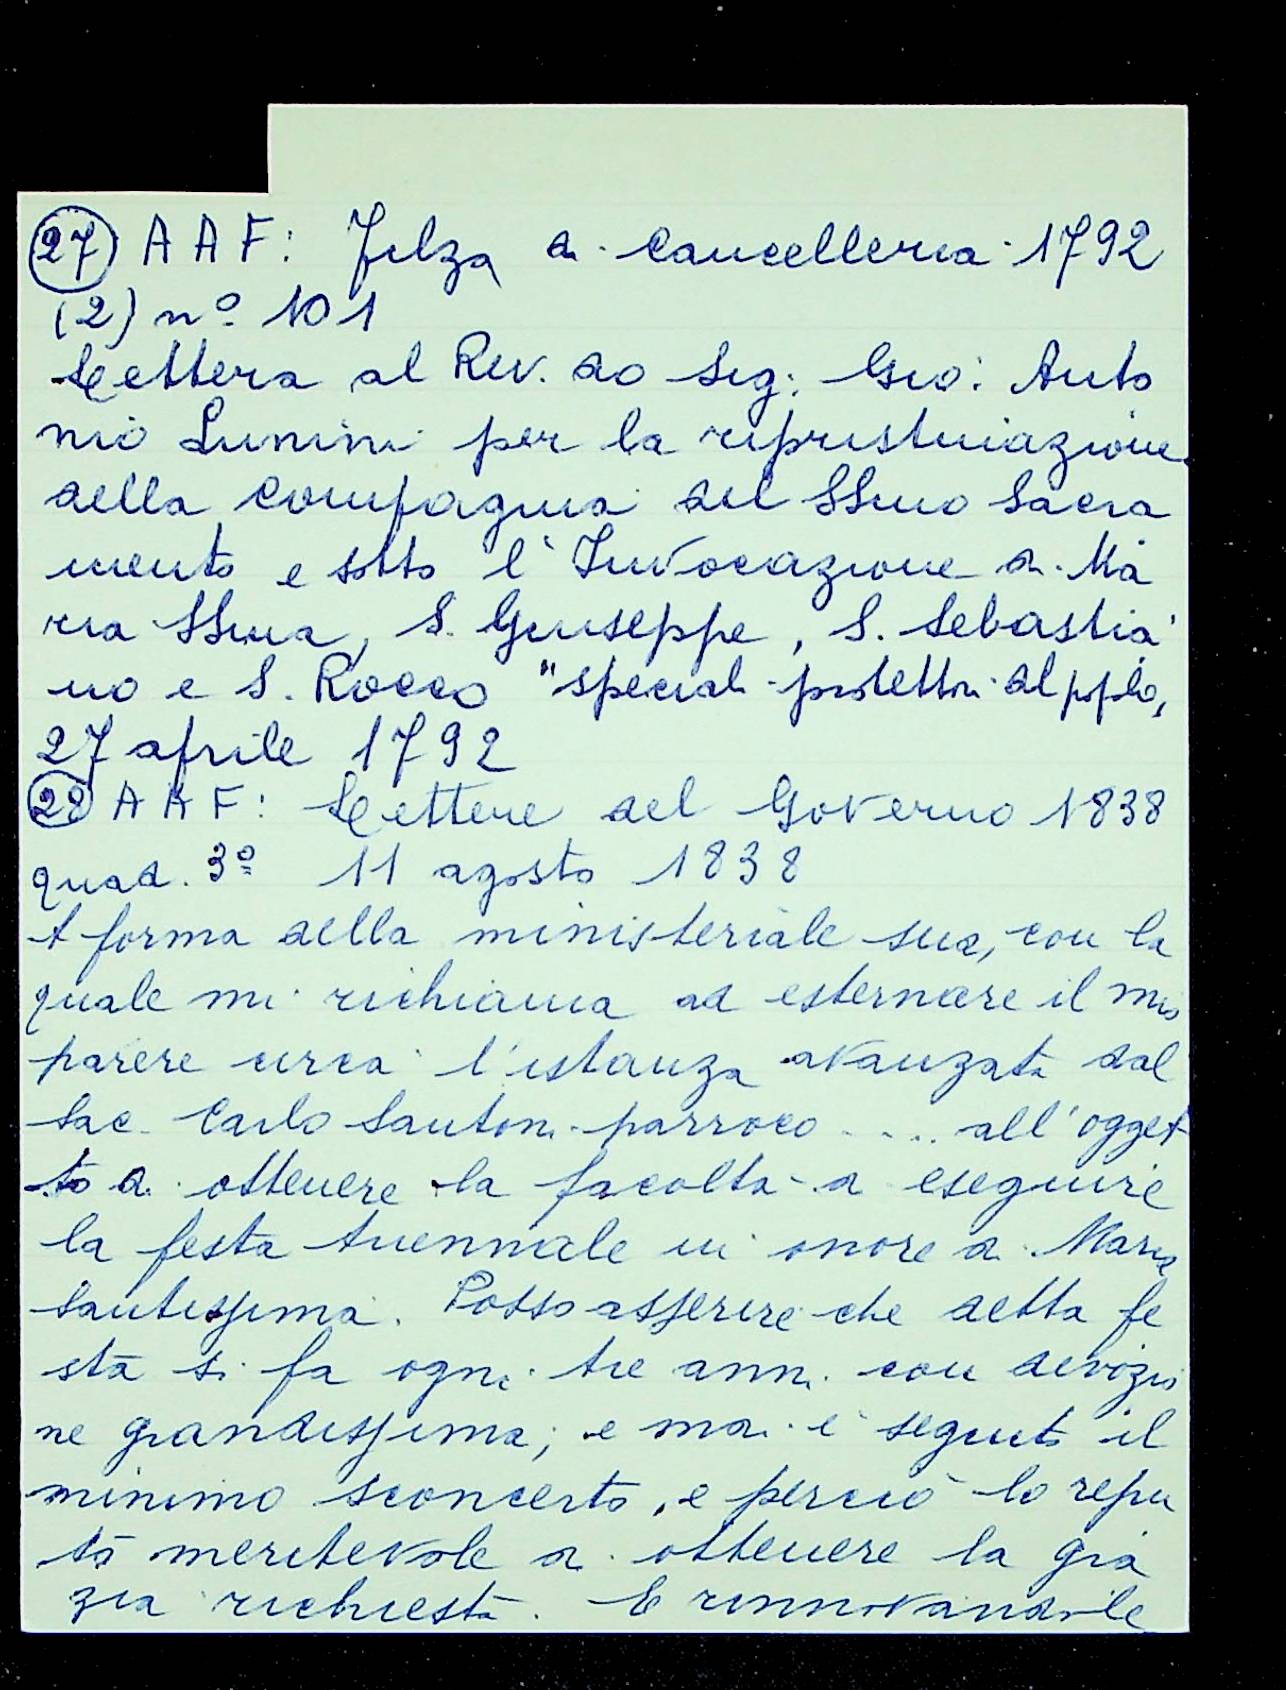 (27) A A F: Filza di Cancelleria 1792
(2) nº 101
Lettera al Rev.do Sig: Gio: Anto
nio Lunini per la ripristinazione
della Compagnia del SSmo Sacra
mento e sotto l'Invocazione di Ma
ria SSma, S. Giuseppe, S. Sebastia
no e S. Rocco "speciali protettori del popolo,
27 aprile 1792
(28) A A F: Lettere del Governo 1838
quad. 3º 11 agosto 1838
A forma della ministeriale sua, con la
quale mi richiama ad esternare il mio
parere circa l'istanza avanzata dal
Sac. Carlo Santoni parroco .... all'ogget
to di ottenere la facoltà di eseguire
la festa triennale in onore di Maria
Santissima. Posso asserire che detta fe
sta si fa ogni tre anni con devozio
ne grandissima; e mai è seguito il
minimo sconcerto, e perciò lo repu
to meritevole di ottenere la gra
zia richiesta. E rinnovandole